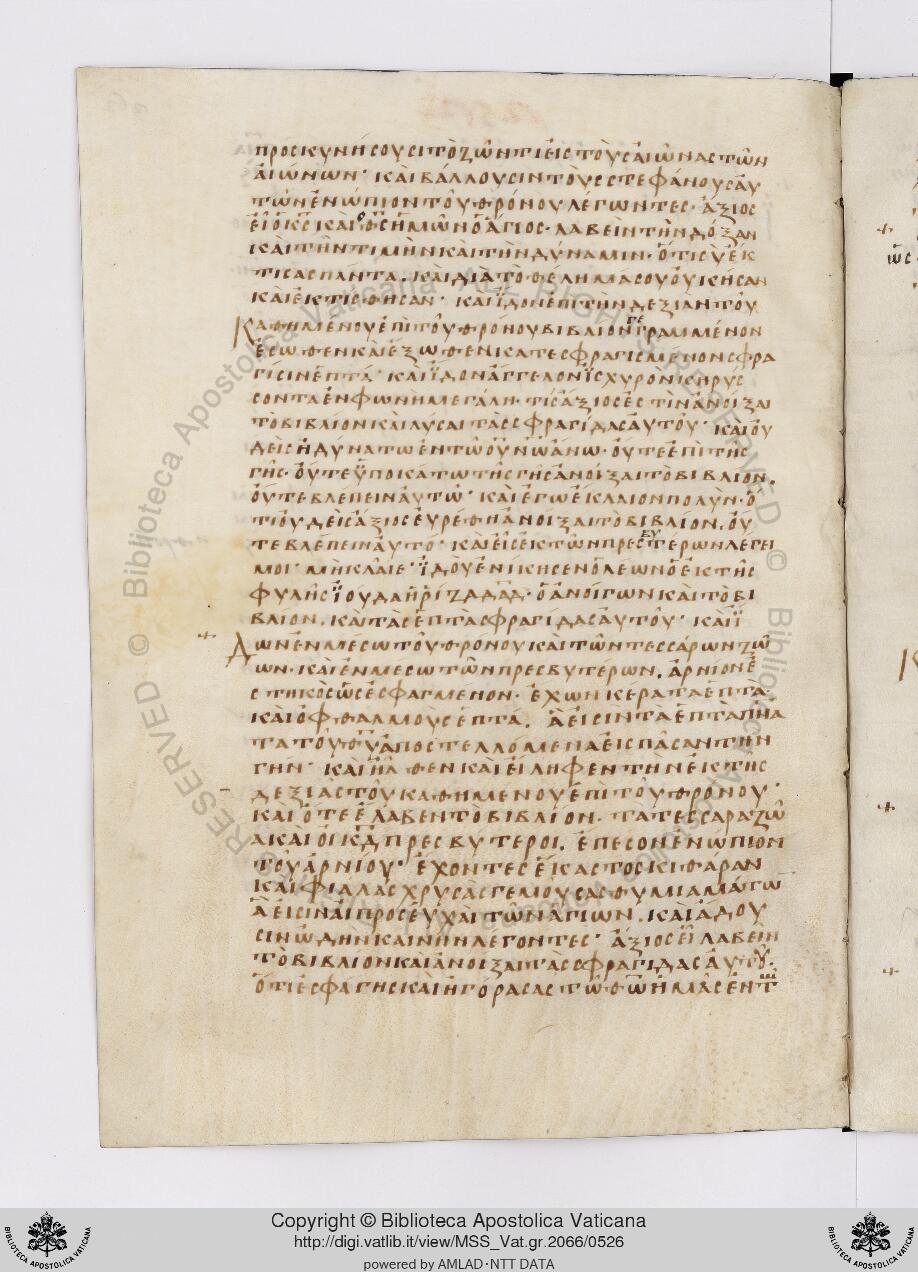 προσκυνήσουσι τὸ ζῶντι εἰς τοὺς αἰῶνας τῶν
αἰώνων· καὶ βάλλουσιν τοὺς στεφάνους αὐ
τῶν ἐνώπιον τοῦ θρόνου λέγωντες· ἄξιος
εἶ ὁ κ̅ς̅ καὶ ὁ θ̅ς̅ ἡμῶν ὁ ἅγιος· λαβεῖν τὴν δόξαν
καὶ τὴν τιμὴν καὶ τὴν δύναμιν· ὅτι σὺ ἔκ
τισας πάντα. καὶ διὰ το θελημά σου οὐκ ἦσαν
καὶ ἐκτίσθησαν· καὶ ἴδον ἐπὶ τὴν δεξιὰν τοῦ
Καθημένου ἐπὶ τοῦ θρόνου βιβλίον γεγραμμένον
ἔσωθεν καὶ ἔξωθεν κατεσφραγισμένον σφρα
γίσιν ἑπτά· καὶ ἴδον ἄγγελον ἰσχυρὸν κηρύσ
σοντα ἐν φωνῆ μεγάλη· τίς ἄξιος ἐστὶν ἀνοίξαι
τὸ βιβλίον καὶ λύσαι τὰς σφραγίδας αὐτοῦ· καὶ οὐ
δεὶς ἠδύνατω ἐν τῶ οὐνῶ ἄνω· οὔτε ἐπὶ τῆς
γῆς· οὔτε ὑποκάτω τῆς γῆς ἀνοίξαι τὸ βιβλίον.
οὔτε βλέπειν αὐτώ· καὶ ἐγὼ ἔκλαιον πολύν· ὅ
τι οὐδεὶς ἄξιος εὑρέθη ἀνοίξαι τὸ βιβλίον. οὔ
τε βλέπειν αὐτό· καὶ εἷς ἐκ τῶν πρεσβυτέρων λέγει
μοι· μὴ κλαῖε· ἰδοὺ ἐνίκησεν ὁ λέων ὁ ἐκ τῆς
φυλῆς ἰούδα ἡ ρίζα δ̅α̅δ̅· ὁ ἀνοίγων καὶ τὸ βι
βλίον. καὶ τὰς ἑπτὰ σφραγίδας αὐτοῦ· καὶ ἴ
Δων ἐν μέσω τοῦ θρόνου καὶ τῶν τεσσάρων ζώ
ων· καὶ ἐν μέσω τῶν πρεσβυτέρων. ἀρνίον ἑ
στηκὸς ὡς ἐσφαγμένον· ἔχων κέρατα ἑπτά·
καὶ ὀφθαλμοὺς ἑπτά. ἅ εἰσιν τὰ ἑπτὰ π̅ν̅α̅
τα τοῦ θ̅υ̅ ἀποστελλόμενα εἰς πᾶσαν τὴν
γῆν· καὶ ἦλθεν καὶ εἴληφεν τὴν ἐκ τῆς
δεξιᾶς τοῦ καθημένου ἐπὶ τοῦ θρόνου·
καὶ ὅτε ἔλαβεν τὸ βιβλίον· τὰ τέσσαρα ζῶ
α καὶ οἱ κ̅δ̅ πρεσβύτεροι. ἔπεσον ἐνώπιον
τοῦ ἀρνίου· ἔχοντες ἕκαστος κιθάραν
καὶ φιάλας χρυσᾶς γεμούσας θυμιαμάτω
ἅ εἰσιν αἱ προσευχαὶ τῶν ἁγίων. καὶ ἄδου
σιν ὠδὴν καινὴν λέγοντες· ἄξιος εἶ λαβεῖν
τὸ βιβλίον καὶ ἀνοίξαι τὰς σφραγίδας αὐτοῦ·
ὅτι ἐσφάγης καὶ ἠγόρασας τῶ θ̅ω̅ ἡμᾶς ἐν τ
Copyright © Biblioteca Apostolica Vaticana
http://digi.vatlib.it/view/MSS_Vat.gr.2066/0526
powered by AMLAD·NTT DATA